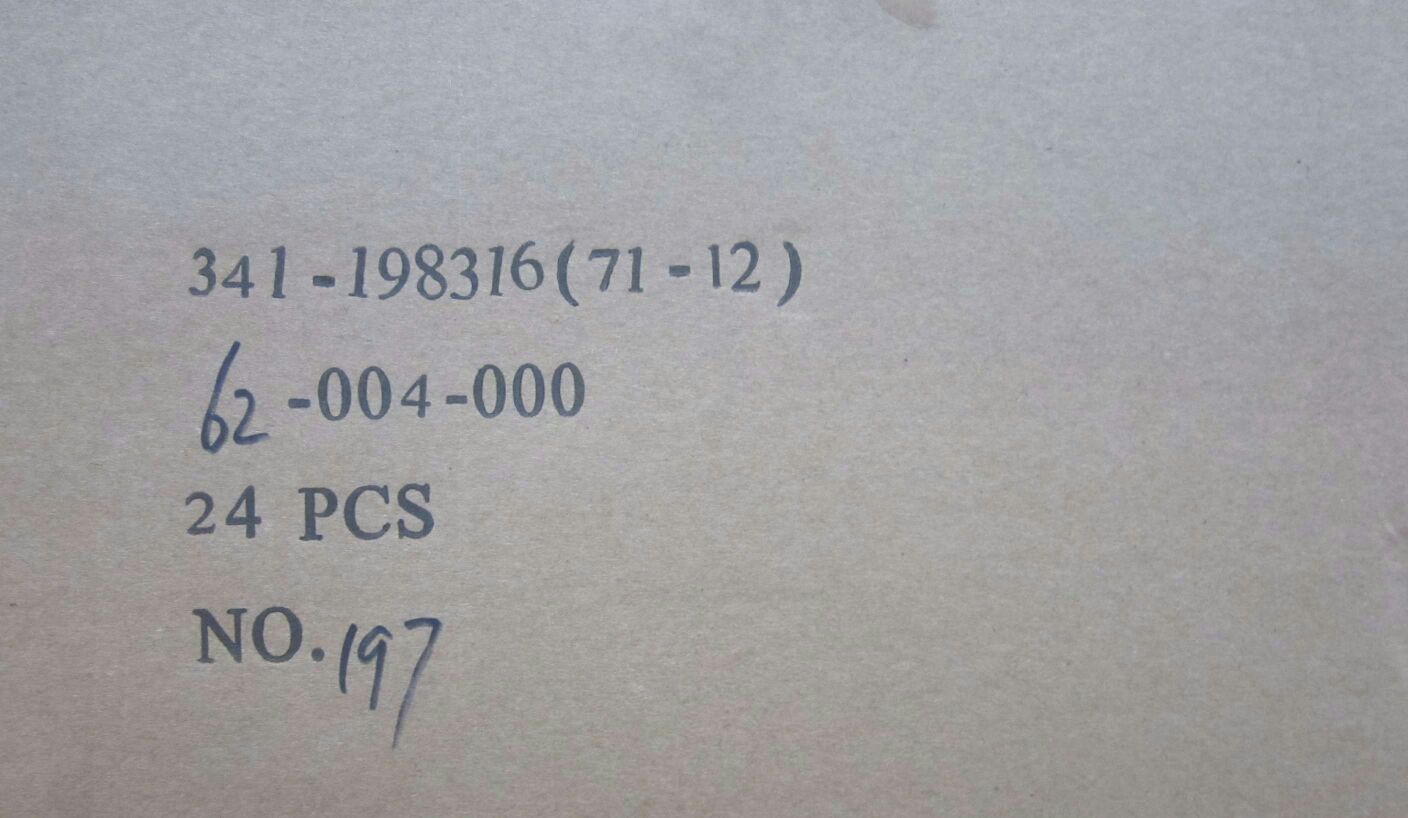 341-198316(71-12)
62-004-000
24 PCS
NO.197